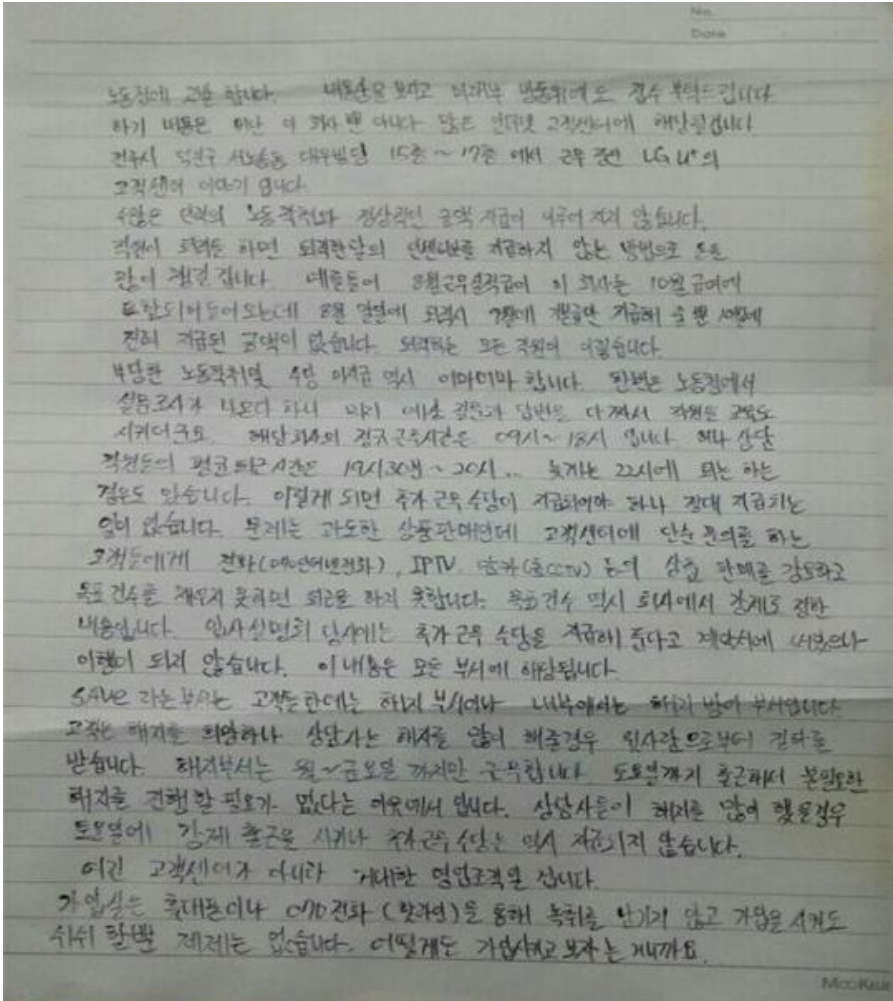 No.
Date
노동청에 고발 합니다. 내용을 보시고 미래부 방통위에도 접수 부탁드립니다.
하기 내용은 이 회사 뿐 아니라 많은 인터넷 고객센터에 해당될겁니다
전주시 덕진구 서노송동 대우빌딩 15층 ~ 17층 에서 근무 중인 LG U+의
고객센터 이야기 입니다
수많은 인력의 노동착취와 정상적인 금액 지급이 이루어 지지 않습니다.
직원이 퇴직을 하면 퇴직한달의 인센티브를 지급하지 않는 방법으로 돈을
많이 챙길 겁니다. 예를들어 8월근무실적급이 이 회사는 10월 급여에
포함되어들어 오는데 8월 말일에 퇴직시 9월에 기본급만 지급해 줄 뿐 10월에
전혀 지급된 금액이 없습니다. 퇴직하는 모든 직원이 이렇습니다.
부당한 노동착취및 수당 미지급 역시 어마어마 합니다. 한번은 노동청에서
설문조사가 나온다 하니 미리 예상 질문과 답변을 다 짜서 직원들 교육도
시키더군요. 해당회사의 정규근무시간은 09시~18시 입니다. 허나 상담
직원들의 평균퇴근시간은 19시30분 ~ 20시... 늦게는 22시에 퇴근 하는
경우도 있습니다. 이렇게 되면 추가 근무 수당이 지급되어야 하나 절대 지급되는
일이 없습니다. 문제는 과도한 상품판매인데 고객센터에 단순 문의를 하는
고객들에게 전화(070인터넷전화), IPTV, 맘카(홈CCTV) 등의 상품 판매를 강요하고
목표 건수를 채우지 못하면 퇴근을 하지 못합니다. 목표건수 역시 회사에서 강제로 정한
내용입니다. 입사설명회 당시에는 추가근무 수당을 지급해 준다고 계약서에 써있으나
이행이 되지 않습니다. 이 내용은 모든 부서에 해당됩니다.
SAVE 라는 부서는 고객들한테는 해지 부서이나 내부에서는 해지 방어 부서입니다.
고객은 해지를 희망하나 상담사는 해지를 많이 해줄경우 윗사람으로부터 질타를
받습니다. 해지부서는 월~금요일 까지만 근무합니다. 토요일까지 출근해서 불필요한
해지를 진행할 필요가 없다는 이유에서 입니다. 상담사들이 해지를 많이 했을경우
토요일에 강제 출근을 시키나 추가근무 수당은 역시 지급되지 않습니다.
여긴 고객센터가 아니라 거대한 영업조직일 겁니다.
가입실은 휴대폰이나 070전화 (핫라인)을 통해 녹취를 남기지 않고 가입을 시켜도
쉬쉬 할뿐 제제는 없습니다. 어떻게든 가입시키고 보자 는 거니까요.